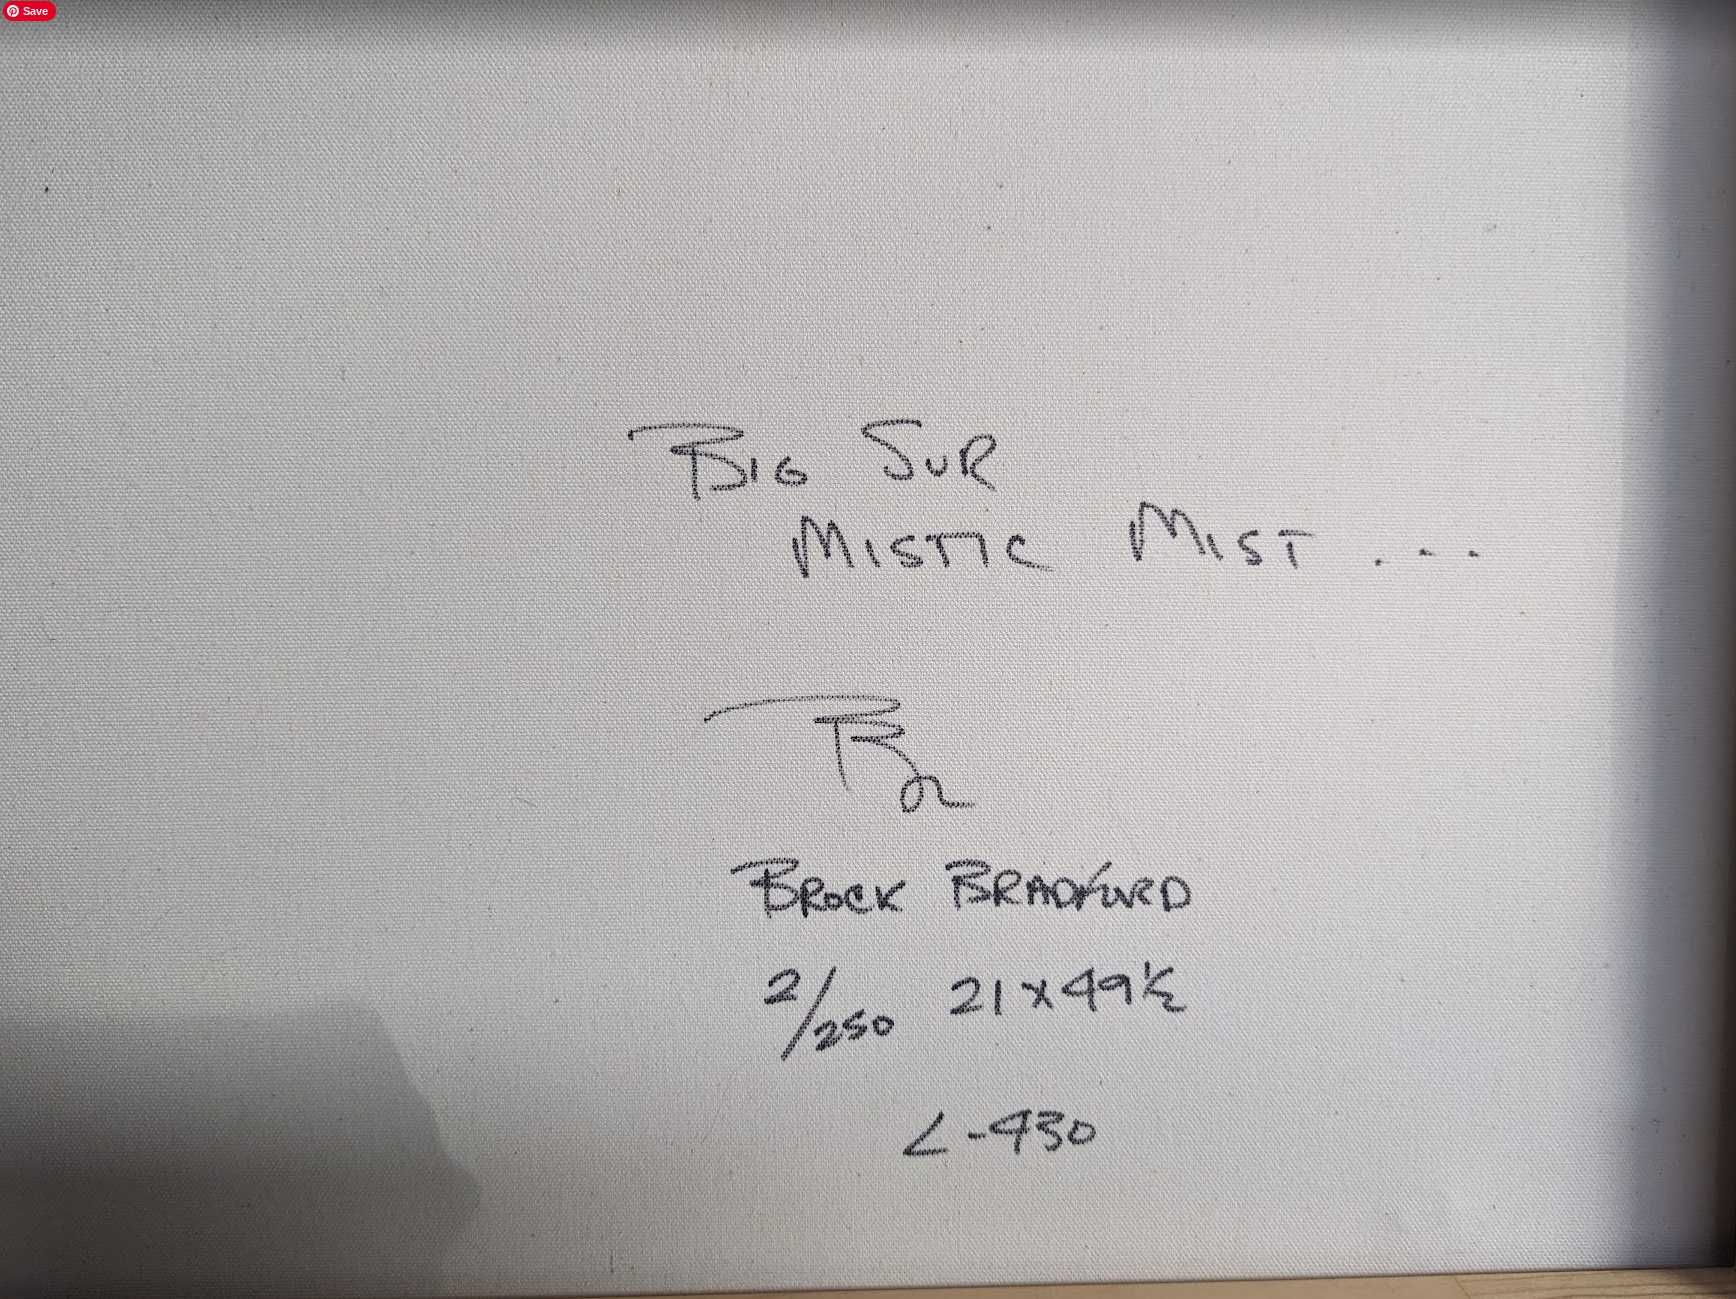 Save
BIG SUR
MISTIC MIST...
BROCK BRADFORD
2/250 21 x 49 1/2
L-430